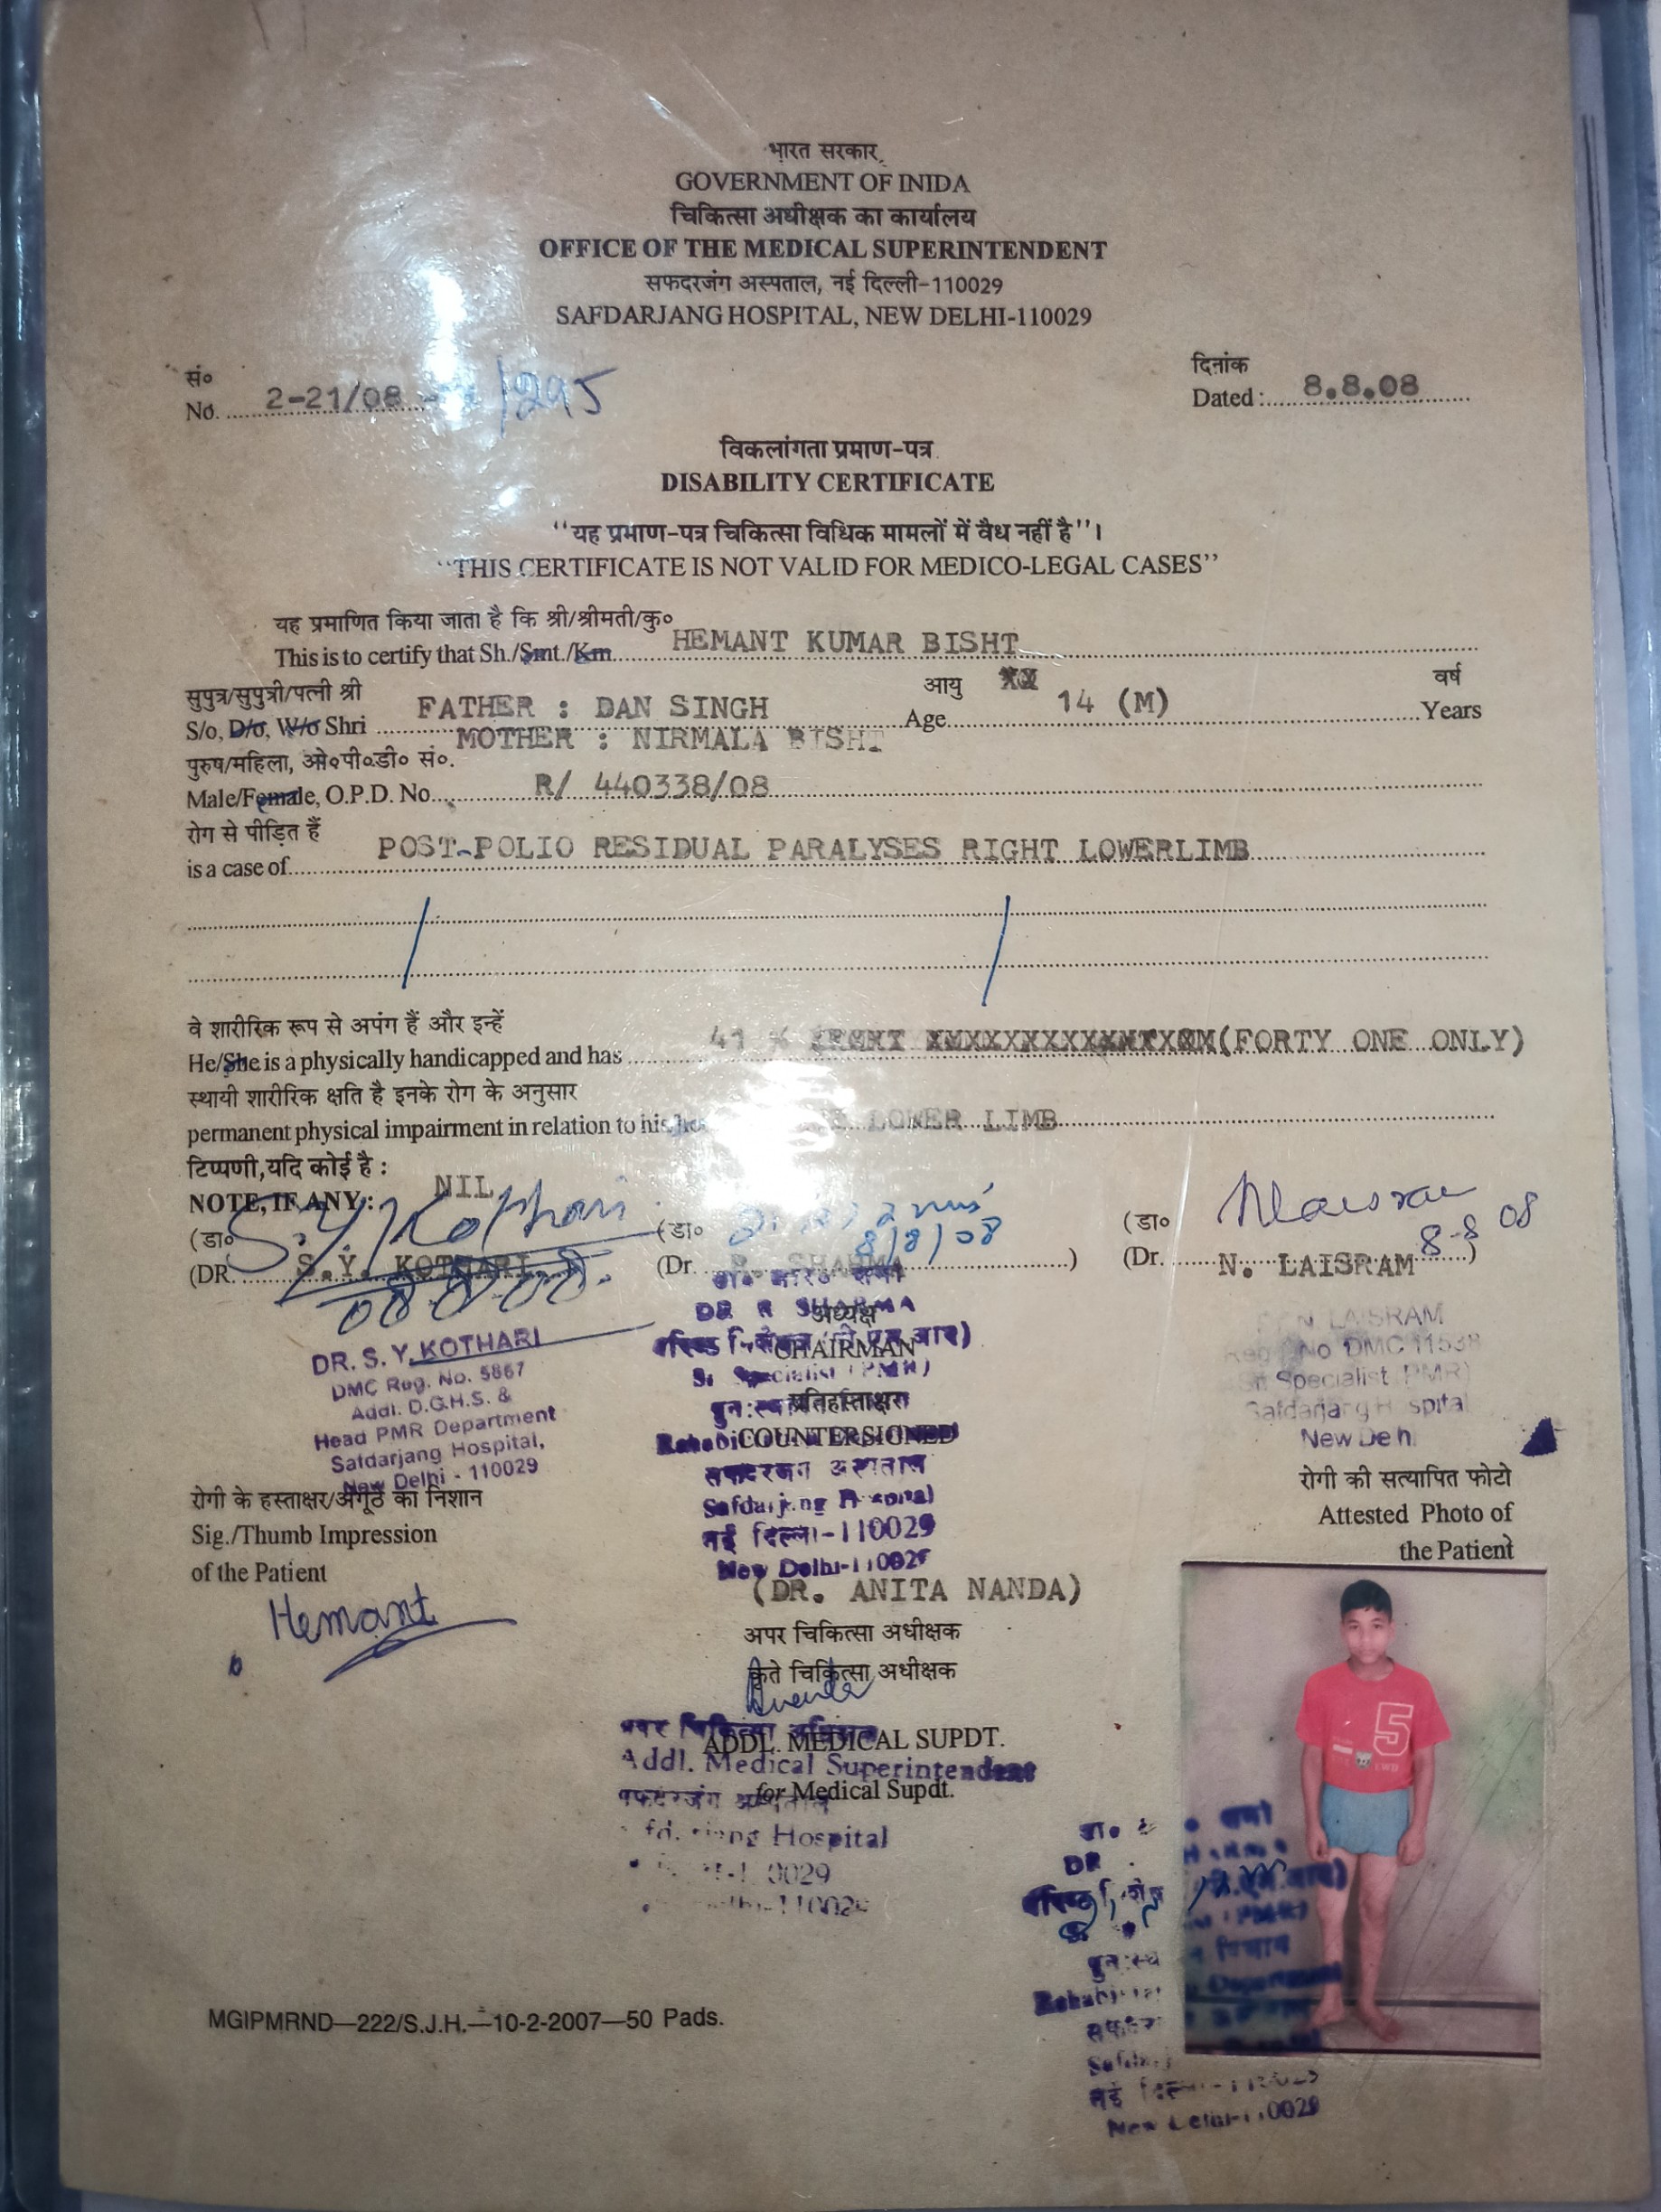 भारत सरकार
GOVERNMENT OF INIDA
चिकित्सा अधीक्षक का कार्यालय
OFFICE OF THE MEDICAL SUPERINTENDENT
सफदरजंग अस्पताल, नई दिल्ली-110029
SAFDARJANG HOSPITAL, NEW DELHI-110029
सं०
No. 2-21/08 /295
दिनांक
Dated : 8.8.08
विकलांगता प्रमाण-पत्र
DISABILITY CERTIFICATE
‘‘यह प्रमाण-पत्र चिकित्सा विधिक मामलों में वैध नहीं है’’।
‘‘THIS CERTIFICATE IS NOT VALID FOR MEDICO-LEGAL CASES’’
यह प्रमाणित किया जाता है कि श्री/श्रीमती/कु०
This is to certify that Sh./Smt./Km. HEMANT KUMAR BISHT
सुपुत्र/सुपुत्री/पत्नी श्री आयु वर्ष
S/o, D/o, W/o Shri FATHER : DAN SINGH Age 14 (M) Years
MOTHER : NIRMALA BISHT
पुरुष/महिला, ओ०पी०डी० सं०.
Male/Female, O.P.D. No. R/ 440338/08
रोग से पीड़ित हैं
is a case of POST-POLIO RESIDUAL PARALYSES RIGHT LOWERLIMB
वे शारीरिक रूप से अपंग हैं और इन्हें
He/She is a physically handicapped and has 41 % (FORTY ONE ONLY)
स्थायी शारीरिक क्षति है इनके रोग के अनुसार
permanent physical impairment in relation to his LOWER LIMB
टिप्पणी,यदि कोई है :
NOTE, IF ANY : NIL
S.Y. Kothari
(डा०
(DR. S.Y. KOTHARI
08.08.08.
(डा०
8/8/08
(Dr. R. SHARMA )
(डा० Nlaisram
8-8 08
(Dr. N. LAISRAM )
DR. S. Y. KOTHARI
DMC Reg. No. 5867
Addl. D.G.H.S. &
Head PMR Department
Safdarjang Hospital,
New Delhi - 110029
DR R SHARMA
अध्यक्ष
CHAIRMAN
Sr Specialist (PMR)
प्रतिहस्ताक्षरा
COUNTERSIGNED
सफदरजंग अस्पताल
Safdarjang Hospital
नई दिल्ली-110029
New Delhi-110029
N. LAISRAM
Reg No DMC 11538
Sr Specialist (PMR)
Safdarjang Hospital
New Delhi
रोगी की सत्यापित फोटो
Attested Photo of
the Patient
रोगी के हस्ताक्षर/अंगूठे का निशान
Sig./Thumb Impression
of the Patient
Hemant
(DR. ANITA NANDA)
अपर चिकित्सा अधीक्षक
कृते चिकित्सा अधीक्षक
ADDL. MEDICAL SUPDT.
Addl. Medical Superintendent
for Medical Supdt.
Hospital
5
DR
New Delhi-110029
MGIPMRND—222/S.J.H.—10-2-2007—50 Pads.